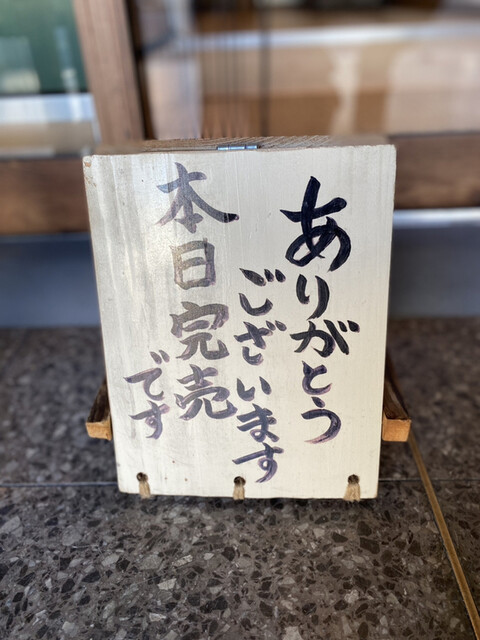 ありがとう
ございます
本日完売
です